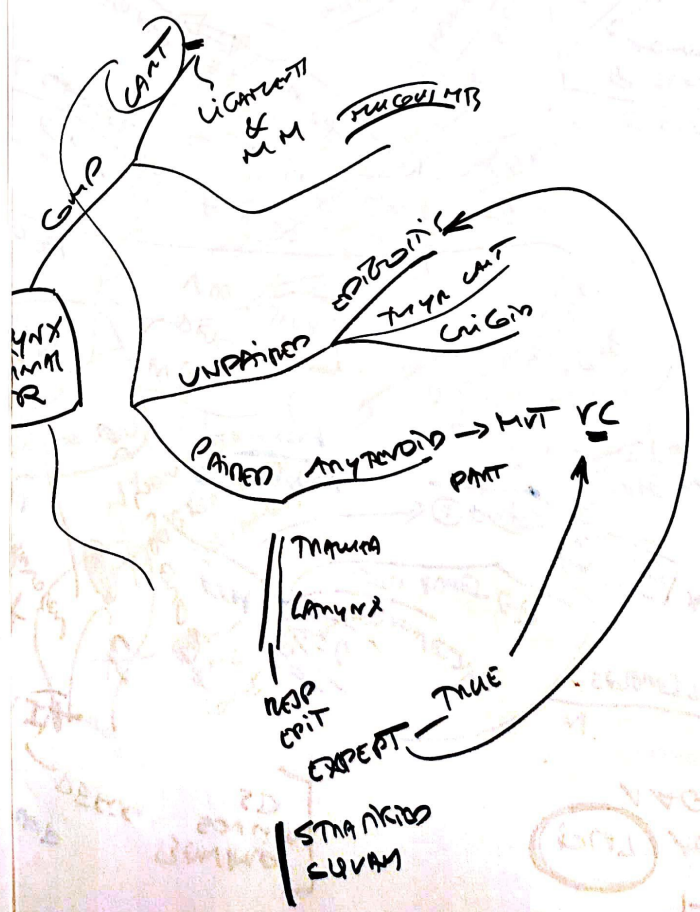 CART
LIGAMENTS
&
MM
MUCOUS MB
COMP
YNX
R
EPIGLOTTIS
THYR CART
CRICOID
UNPAIRED
PAIRED
ARYTENOID → MVT VC
PART
TRAUMA
LARYNX
RESP
EPIT
EXPEPT TRUE
STRATKIED
SQUAM